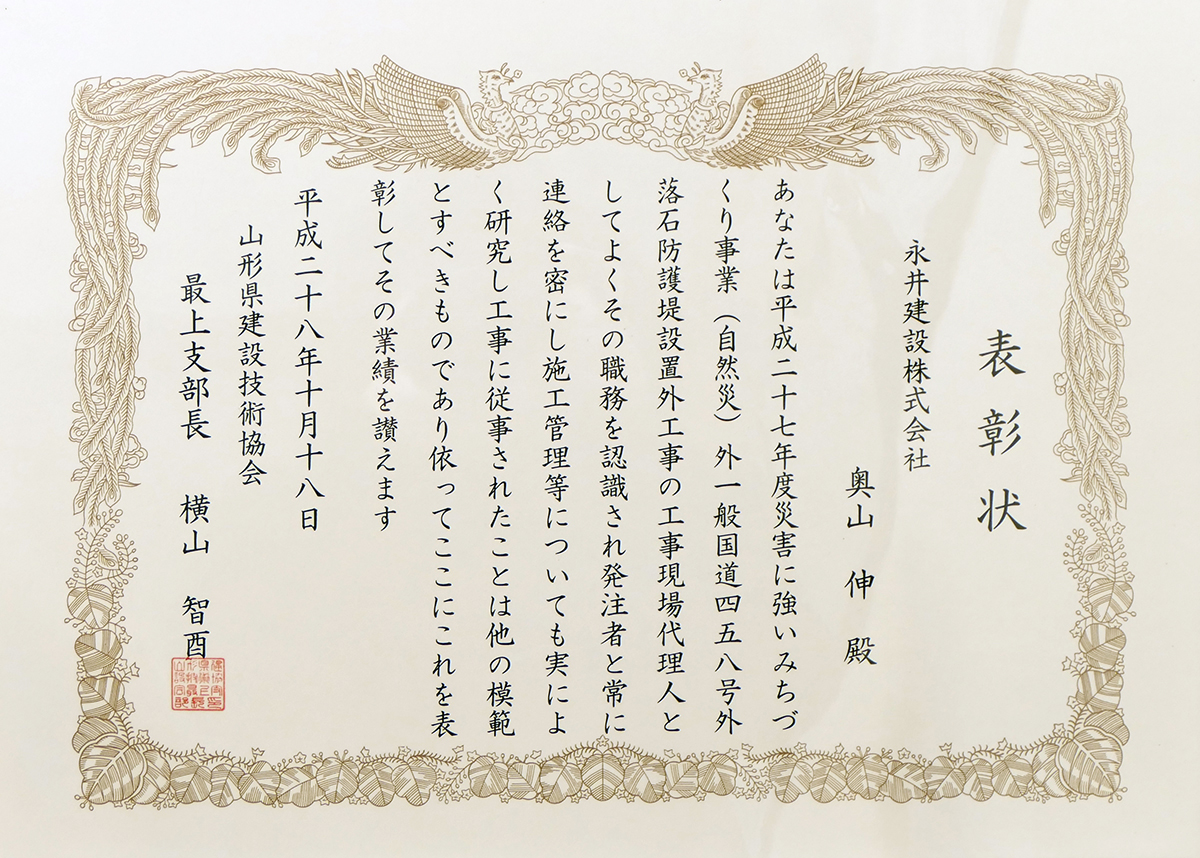 表彰状
永井建設株式会社
奥山 伸 殿
あなたは平成二十七年度災害に強いみちづ
くり事業（自然災）外一般国道四五八号外
落石防護堤設置外工事の工事現場代理人と
してよくその職務を認識され発注者と常に
連絡を密にし施工管理等についても実によ
く研究し工事に従事されたことは他の模範
とすべきものであり依ってここにこれを表
彰してその業績を讃えます
平成二十八年十月十八日
山形県建設技術協会
最上支部長 横山 智酉